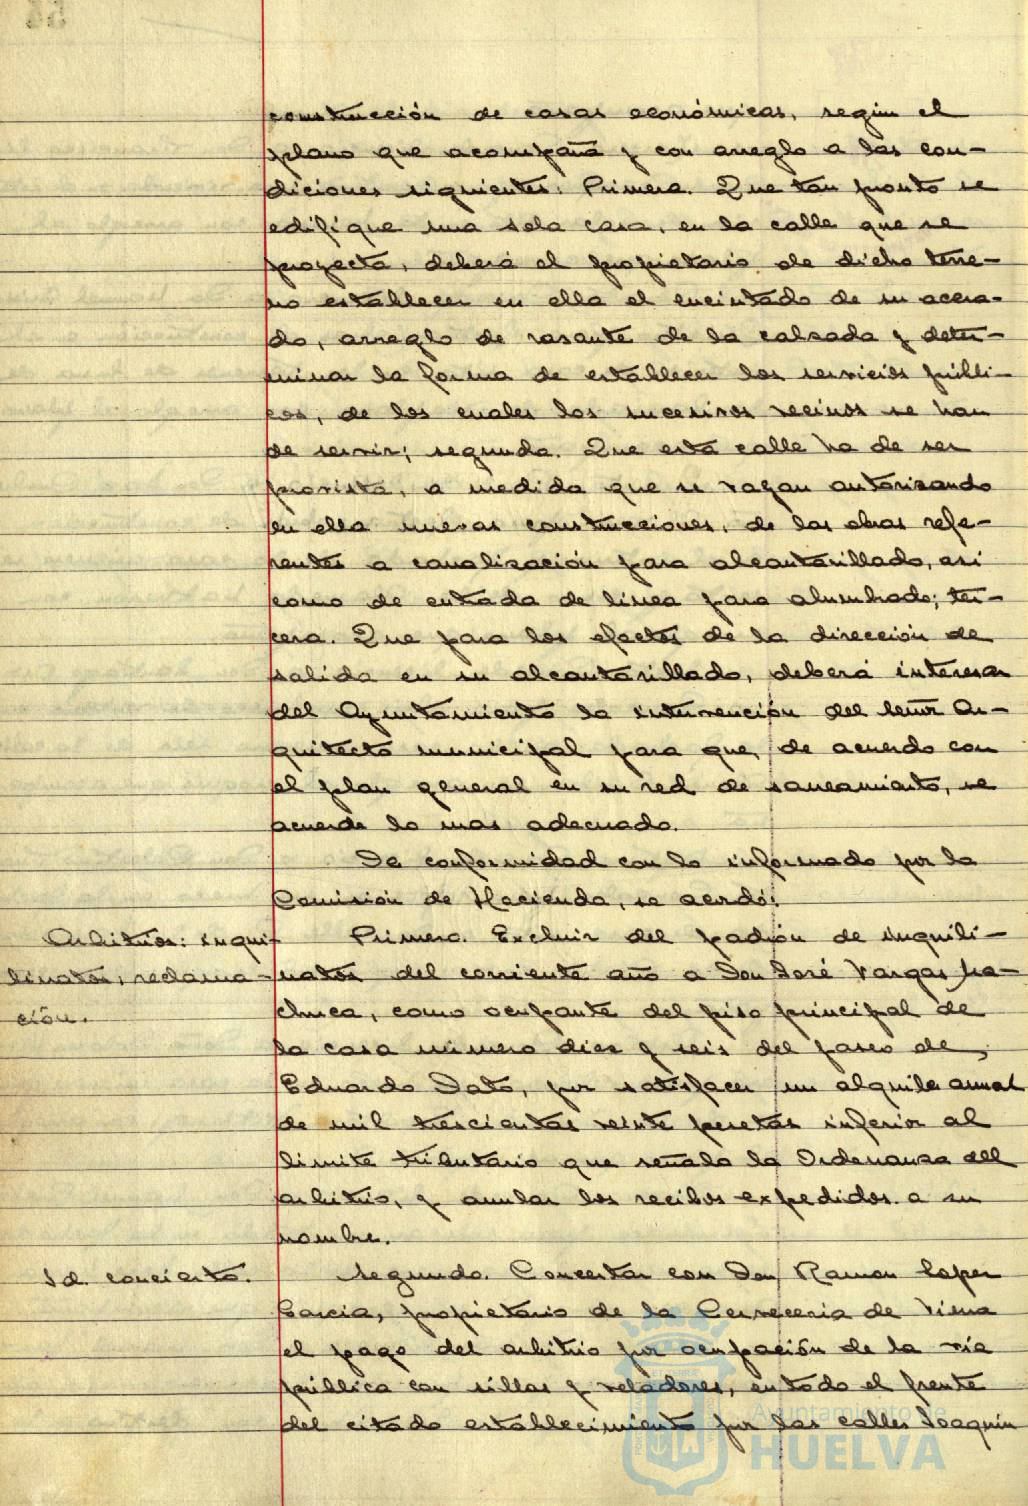 construcción de casas económicas, según el
plano que acompaña y con arreglo a las con-
diciones siguientes: Primera. Que tan pronto se
edifique una sola casa, en la calle que se
proyecta, deberá el propietario de dicho terre-
no establecer en ella el encintado de su acera-
do, arreglo de rasante de la calzada y deter-
minar la forma de establecer los servicios públi-
cos, de los cuales los sucesivos vecinos se han
de servir; segunda. Que esta calle ha de ser
provista, a medida que se vayan autorizando
en ella nuevas construcciones, de las obras refe-
rentes a canalización para alcantarillado, así
como de entrada de línea para alumbrado; ter-
cera. Que para los efectos de la dirección de
salida en su alcantarillado, deberá interesar
del Ayuntamiento la intervención del señor Ar-
quitecto municipal para que, de acuerdo con
el plan general en su red de saneamiento, se
acuerde lo mas adecuado.
De conformidad con lo informado por la
Comisión de Hacienda, se acordó:
Arbitrios: inqui-
linatos, reclama-
ción.
Primero. Excluir del padrón de inquili-
natos del corriente año a Don José Vargas Ma-
chuca, como ocupante del piso principal de
la casa número diez y seis del paseo de
Eduardo Dato, por satisfacer un alquiler anual
de mil trescientas veinte pesetas inferior al
límite tributario que señala la Ordenanza del
arbitrio, y anular los recibos expedidos a su
nombre.
Id. concierto.
Segundo. Concertar con Don Ramon Lopez
García, propietario de la Cervecería de Viena
el pago del arbitrio por ocupación de la vía
pública con sillas y veladores, en todo el frente
del citado establecimiento por las calles Joaquín
Ayuntamiento de
HUELVA